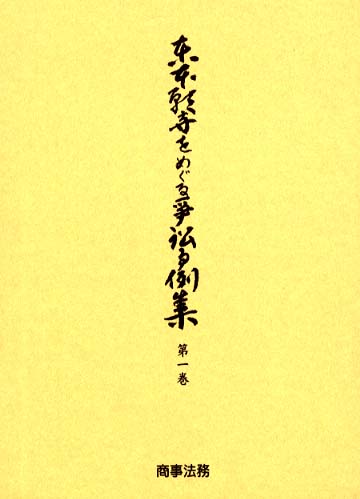 東本願寺をめぐる争訟事例集
第一巻
商事法務